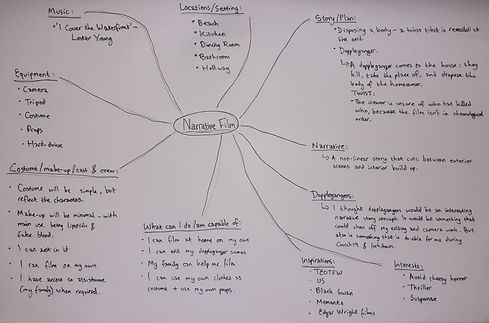 Music:
"I Cover the Waterfront" -
Lester Young
Locations/Setting:
• Beach
• Kitchen
• Dining Room
• Bathroom
• Hallway
Story/Plan:
• Disposing a body - a twist that is revealed at
the end.
• Doppelganger.
↳ A doppelganger comes to the house: they
kill, take the place of, and dispose the
body of the homeowner.
TWIST:
• The viewer is unsure of who has killed
who, because the film isn't in chronological
order.
Equipment:
• Camera
• Tripod
• Costume
• Props
• Hard-drive
Narrative Film
Narrative:
↳ A non-linear story that cuts between exterior
scenes and interior build up.
Costume/make-up/cast & crew:
• Costume will be simple, but
reflect the characters.
• Make-up will be minimal - with
main use being lipstick &
fake blood.
• I can act in it
• I can film on my own
• I have access to assistance
(my family) when required.
What can I do/am capable of:
• I can film at home on my own
• I can edit my doppelganger scenes
• My family can help me film
• I can use my own clothes as
costume + use my own props.
Doppelgangers:
↳ I thought doppelgangers would be an interesting
narrative story concept. It would be something that
could show off my editing and camera work. But
also is something that is doable for me during
Covid-19 & lockdown.
Inspirations:
• TBOTFW
• US
• Black Swan
• Memento
• Edgar Wright films
Interests:
• Avoid cheesy horror
• Thriller
• Suspense